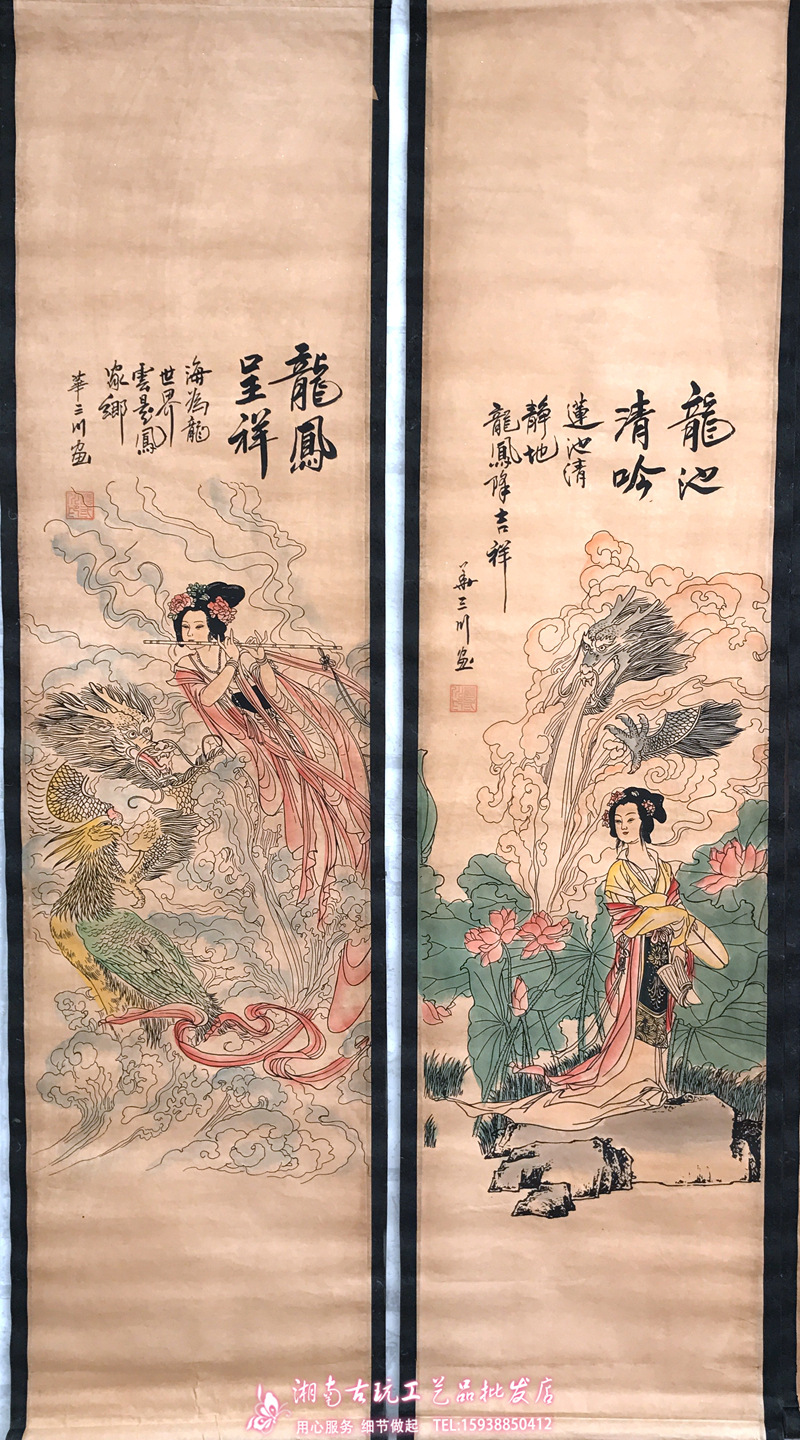 龍鳳
呈祥
海為龍
世界
雲是鳳
家鄉
華三川畫
龍池
清吟
蓮池清
靜地
龍鳳降吉祥
華三川畫
湘南古玩工艺品批发店
用心服务 细节做起 TEL:15938850412